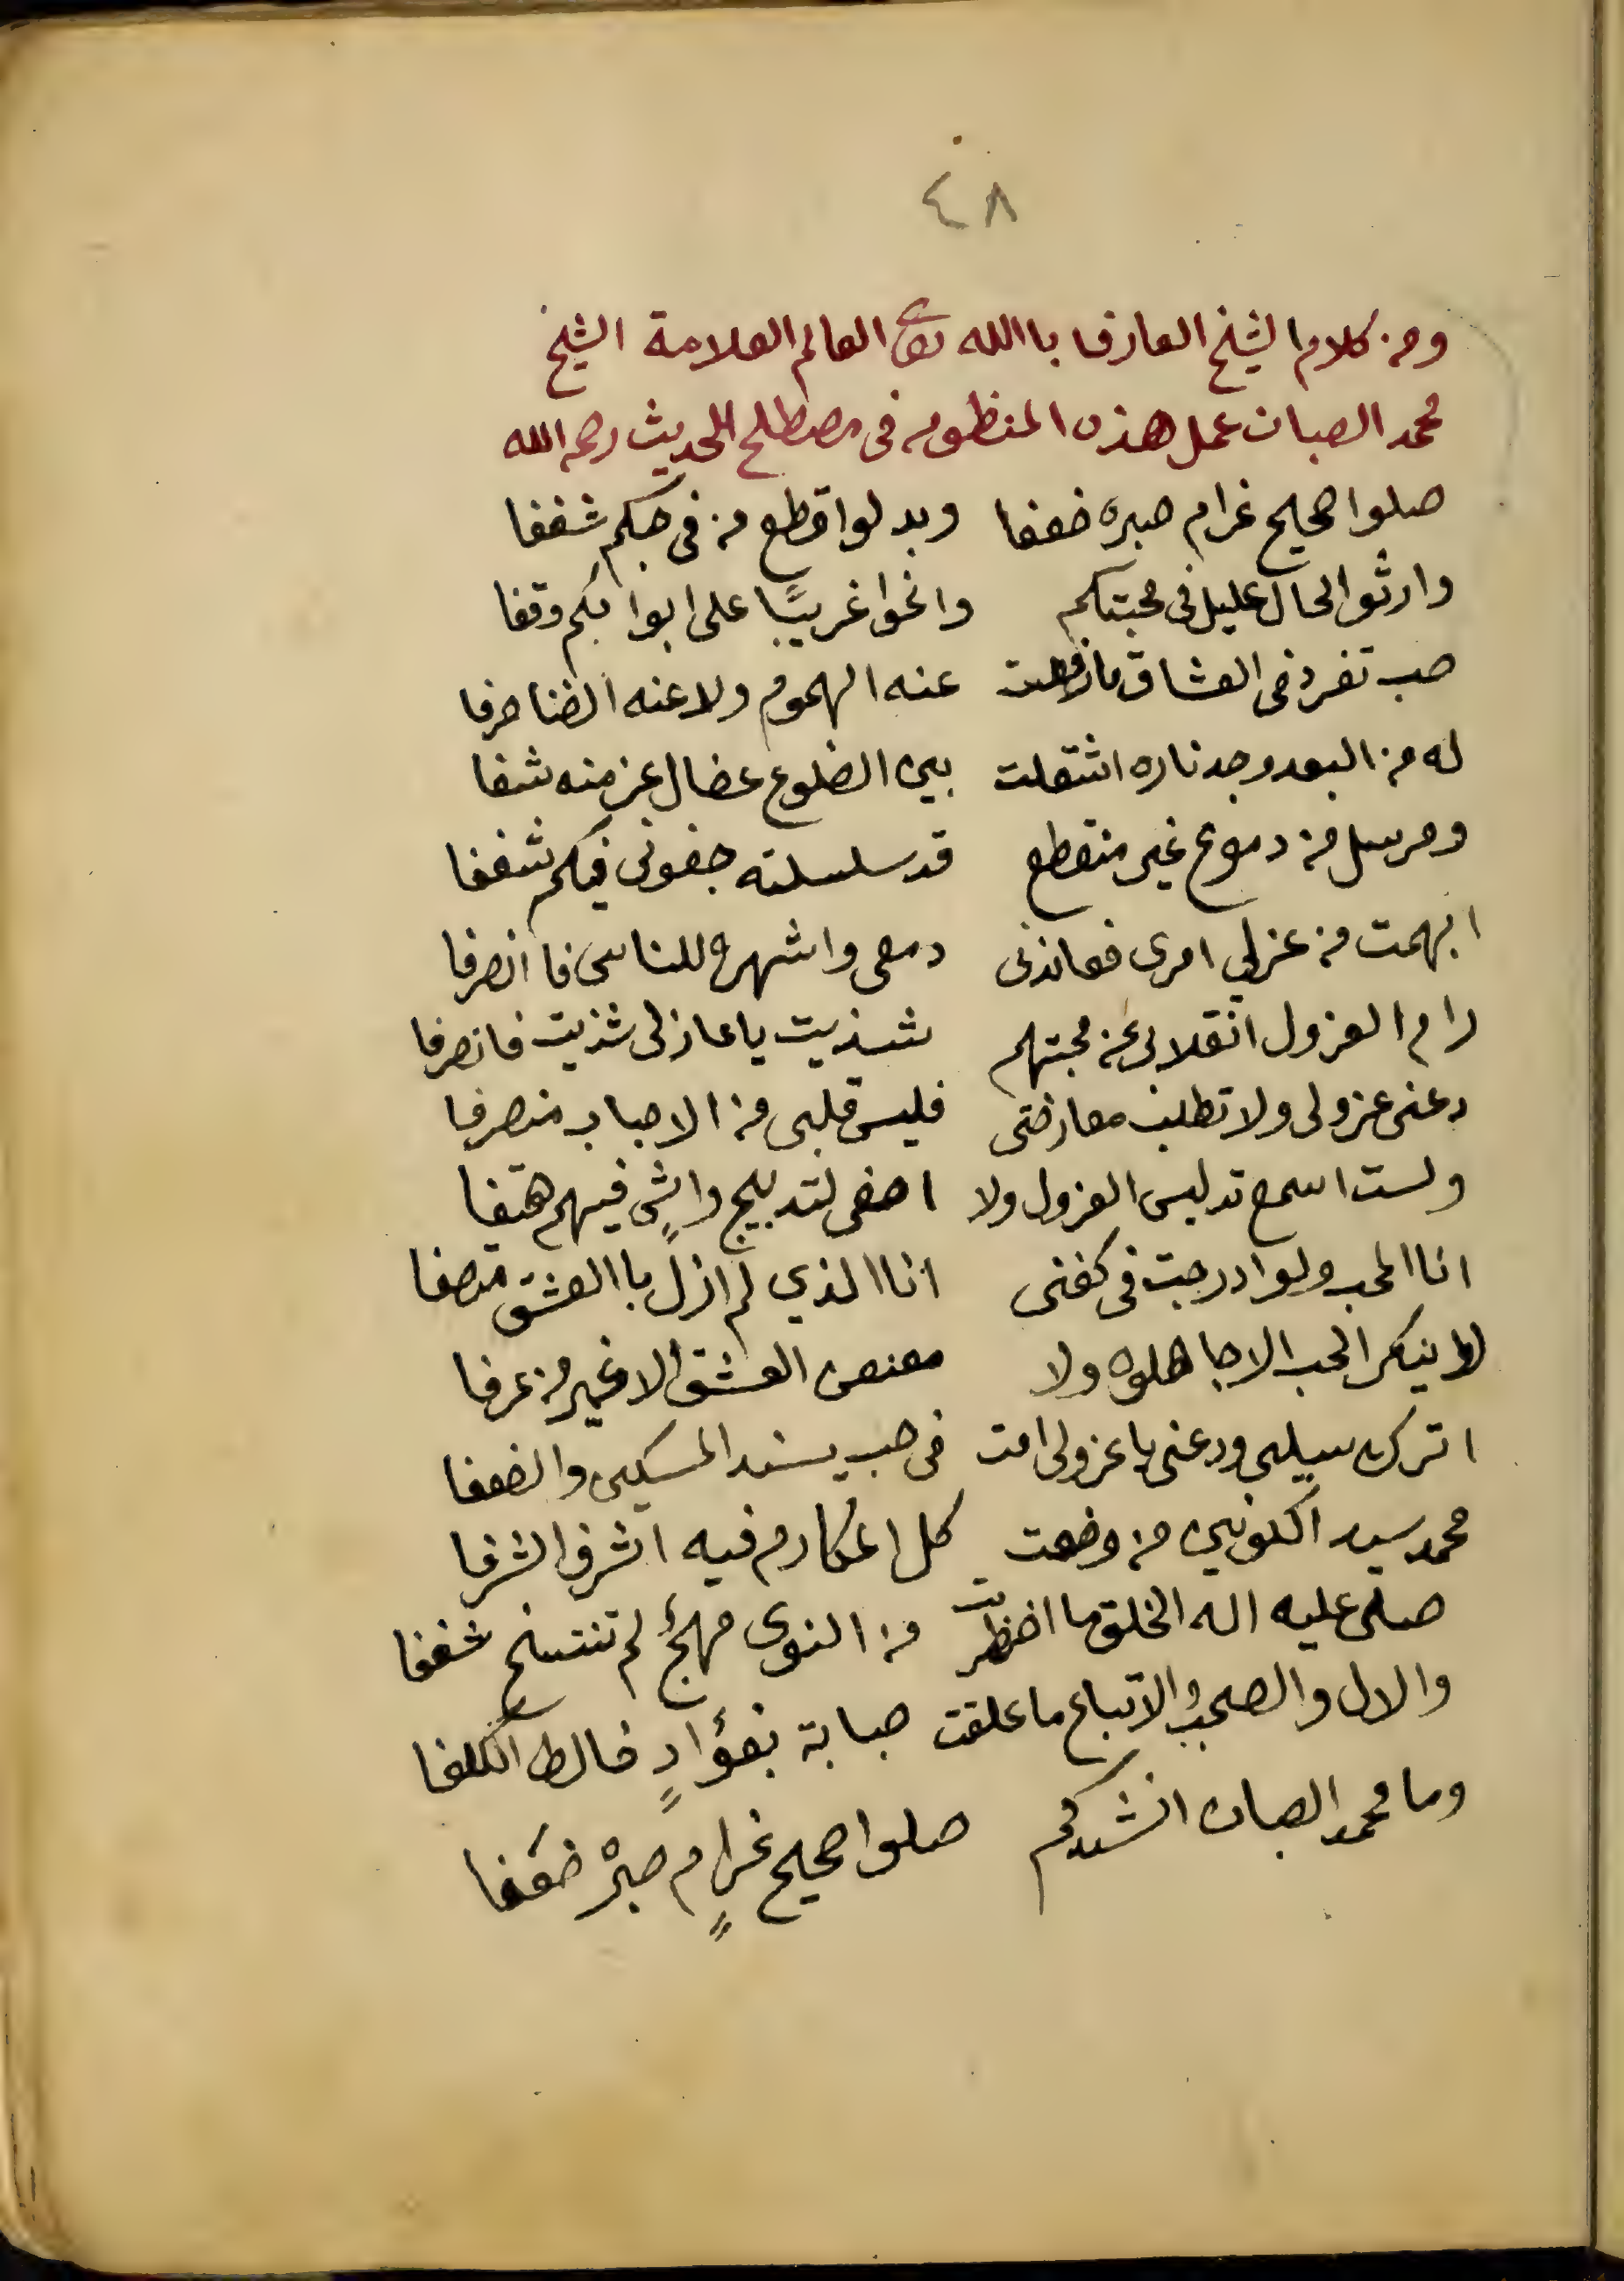 ٤٨
ومن كلام الشيخ العارف باالله تعالى العالم العلامة الشيخ
محمد الصبان عمل هذه المنظومه فى مصطلح الحديث رحمه الله
صلوا صحيح غرام صبره ضعفا وبدلوا قطع من فى حبكم شغفا
وارثوا لحال عليل فى محبتكم وانحوا غريبًا على ابوابكم وقفا
صب تفرد فى العشاق ما رفعت عنه الهموم ولا عنه الضنا صرفا
له من البعد وجد ناره اشتعلت بين الضلوع عضال عز منه شفا
ومرسل من دموع غير منقطع قد سلسلته جفونى فيكم شغفا
ابهمت من عزلي امرى فعاندنى دمعى واشهره للناس فا انصرفا
رام العزول انقلابى عن محبتهم شذيت يا عازلى شذيت فانصرفا
دعنى عزولى ولا تطلب معارضتى فليس قلبى من الاحباب منصرفا
ولست اسمع تدليس العزول ولا اصغى لتدبيج واشٍ فيهم هتفا
انا المحب ولو ادرجت فى كفنى انا الذي لم ازل باالعشق متصفا
لا ينكر الحب الا جاهلوه ولا معنعن العشق الا غير من عرفا
اترك سبيلى ودعنى يا عزولى امت فى حب يسند المسكين والضعفا
محمد سيد الكونين من وضعت كل المكارم فيه اشرف الشرفا
صلى عليه اله الخلق ما اضطربت من النوى مهجٌ لم تنتسخ شغفا
والال والصحب والاتباع ما علقت صبابة بفؤادٍ خالط الكلفا
وما محمد الصبان انشدكم صلوا صحيح غرامٍ صبرْه ضعَفا